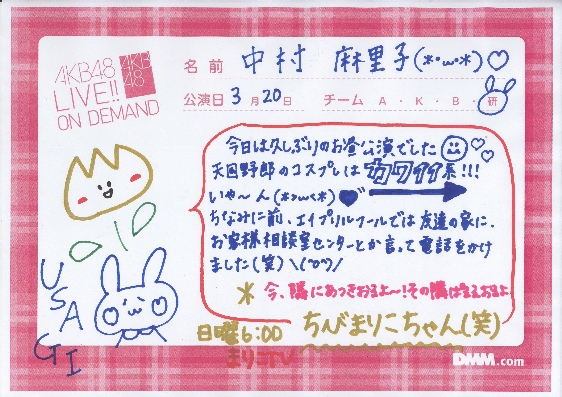 AKB48
LIVE!!
ON DEMAND
AKB
48
名前 中村 麻里子(*・ω・*)♡
公演日 3月20日 チーム A・K・B・研
今日は久しぶりのお昼公演でした
天国野郎のコスプレはカワイイ系!!!
いや〜ん(*>ω<*)
ちなみに前、エイプリルフールでは友達の家に、
お客様相談室センターとか言って電話をかけ
ました(笑)\(^o^)/
今、隣にあつきおるよ〜!その隣は
ちびまりこちゃん(笑)
日曜6:00
まりこTV
USAGI
DMM.com